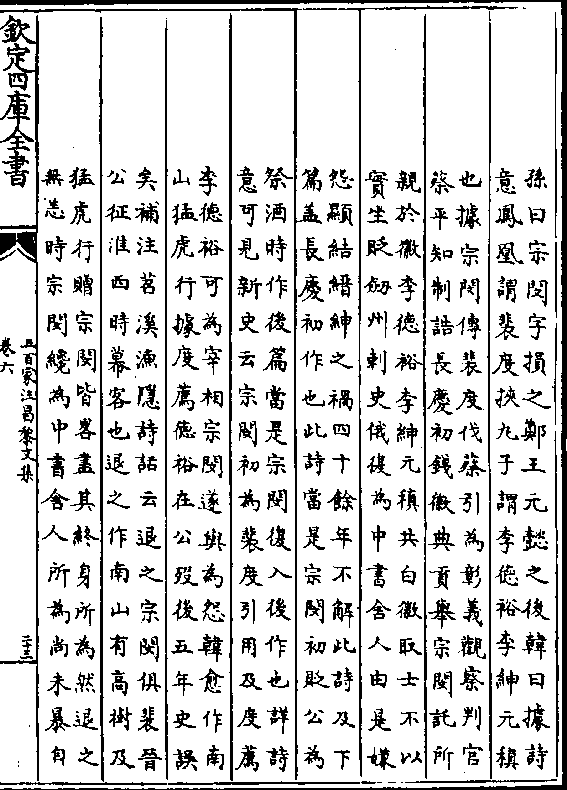 孫曰宗閔字損之鄭王元懿之後韓曰據詩
意鳳凰謂裴度挾九子謂李德裕李紳元稹
也據宗閔傳裴度伐蔡引為彰義觀察判官
蔡平知制誥長慶初錢徽典貢舉宗閔託所
親於徽李德裕李紳元稹共白徽取士不以
實坐貶劒州刺史俄復為中書舍人由是嫌
怨顯結縉紳之禍四十餘年不解此詩及下
篇盖長慶初作也此詩當是宗閔初貶公為
祭酒時作後篇當是宗閔復入後作也詳詩
意可見新史云宗閔初為裴度引用及度薦
李德裕可為宰相宗閔遂與為怨韓愈作南
山猛虎行據度薦德裕在公歿後五年史誤
矣補注苕溪漁隱詩話云退之宗閔俱裴晉
公征淮西時幕客也退之作南山有高樹及
猛虎行贈宗閔皆畧盡其終身所為然退之
無恙時宗閔纔為中書舍人所為尚未暴白
欽定四庫全書
五百家注昌黎文集
卷六